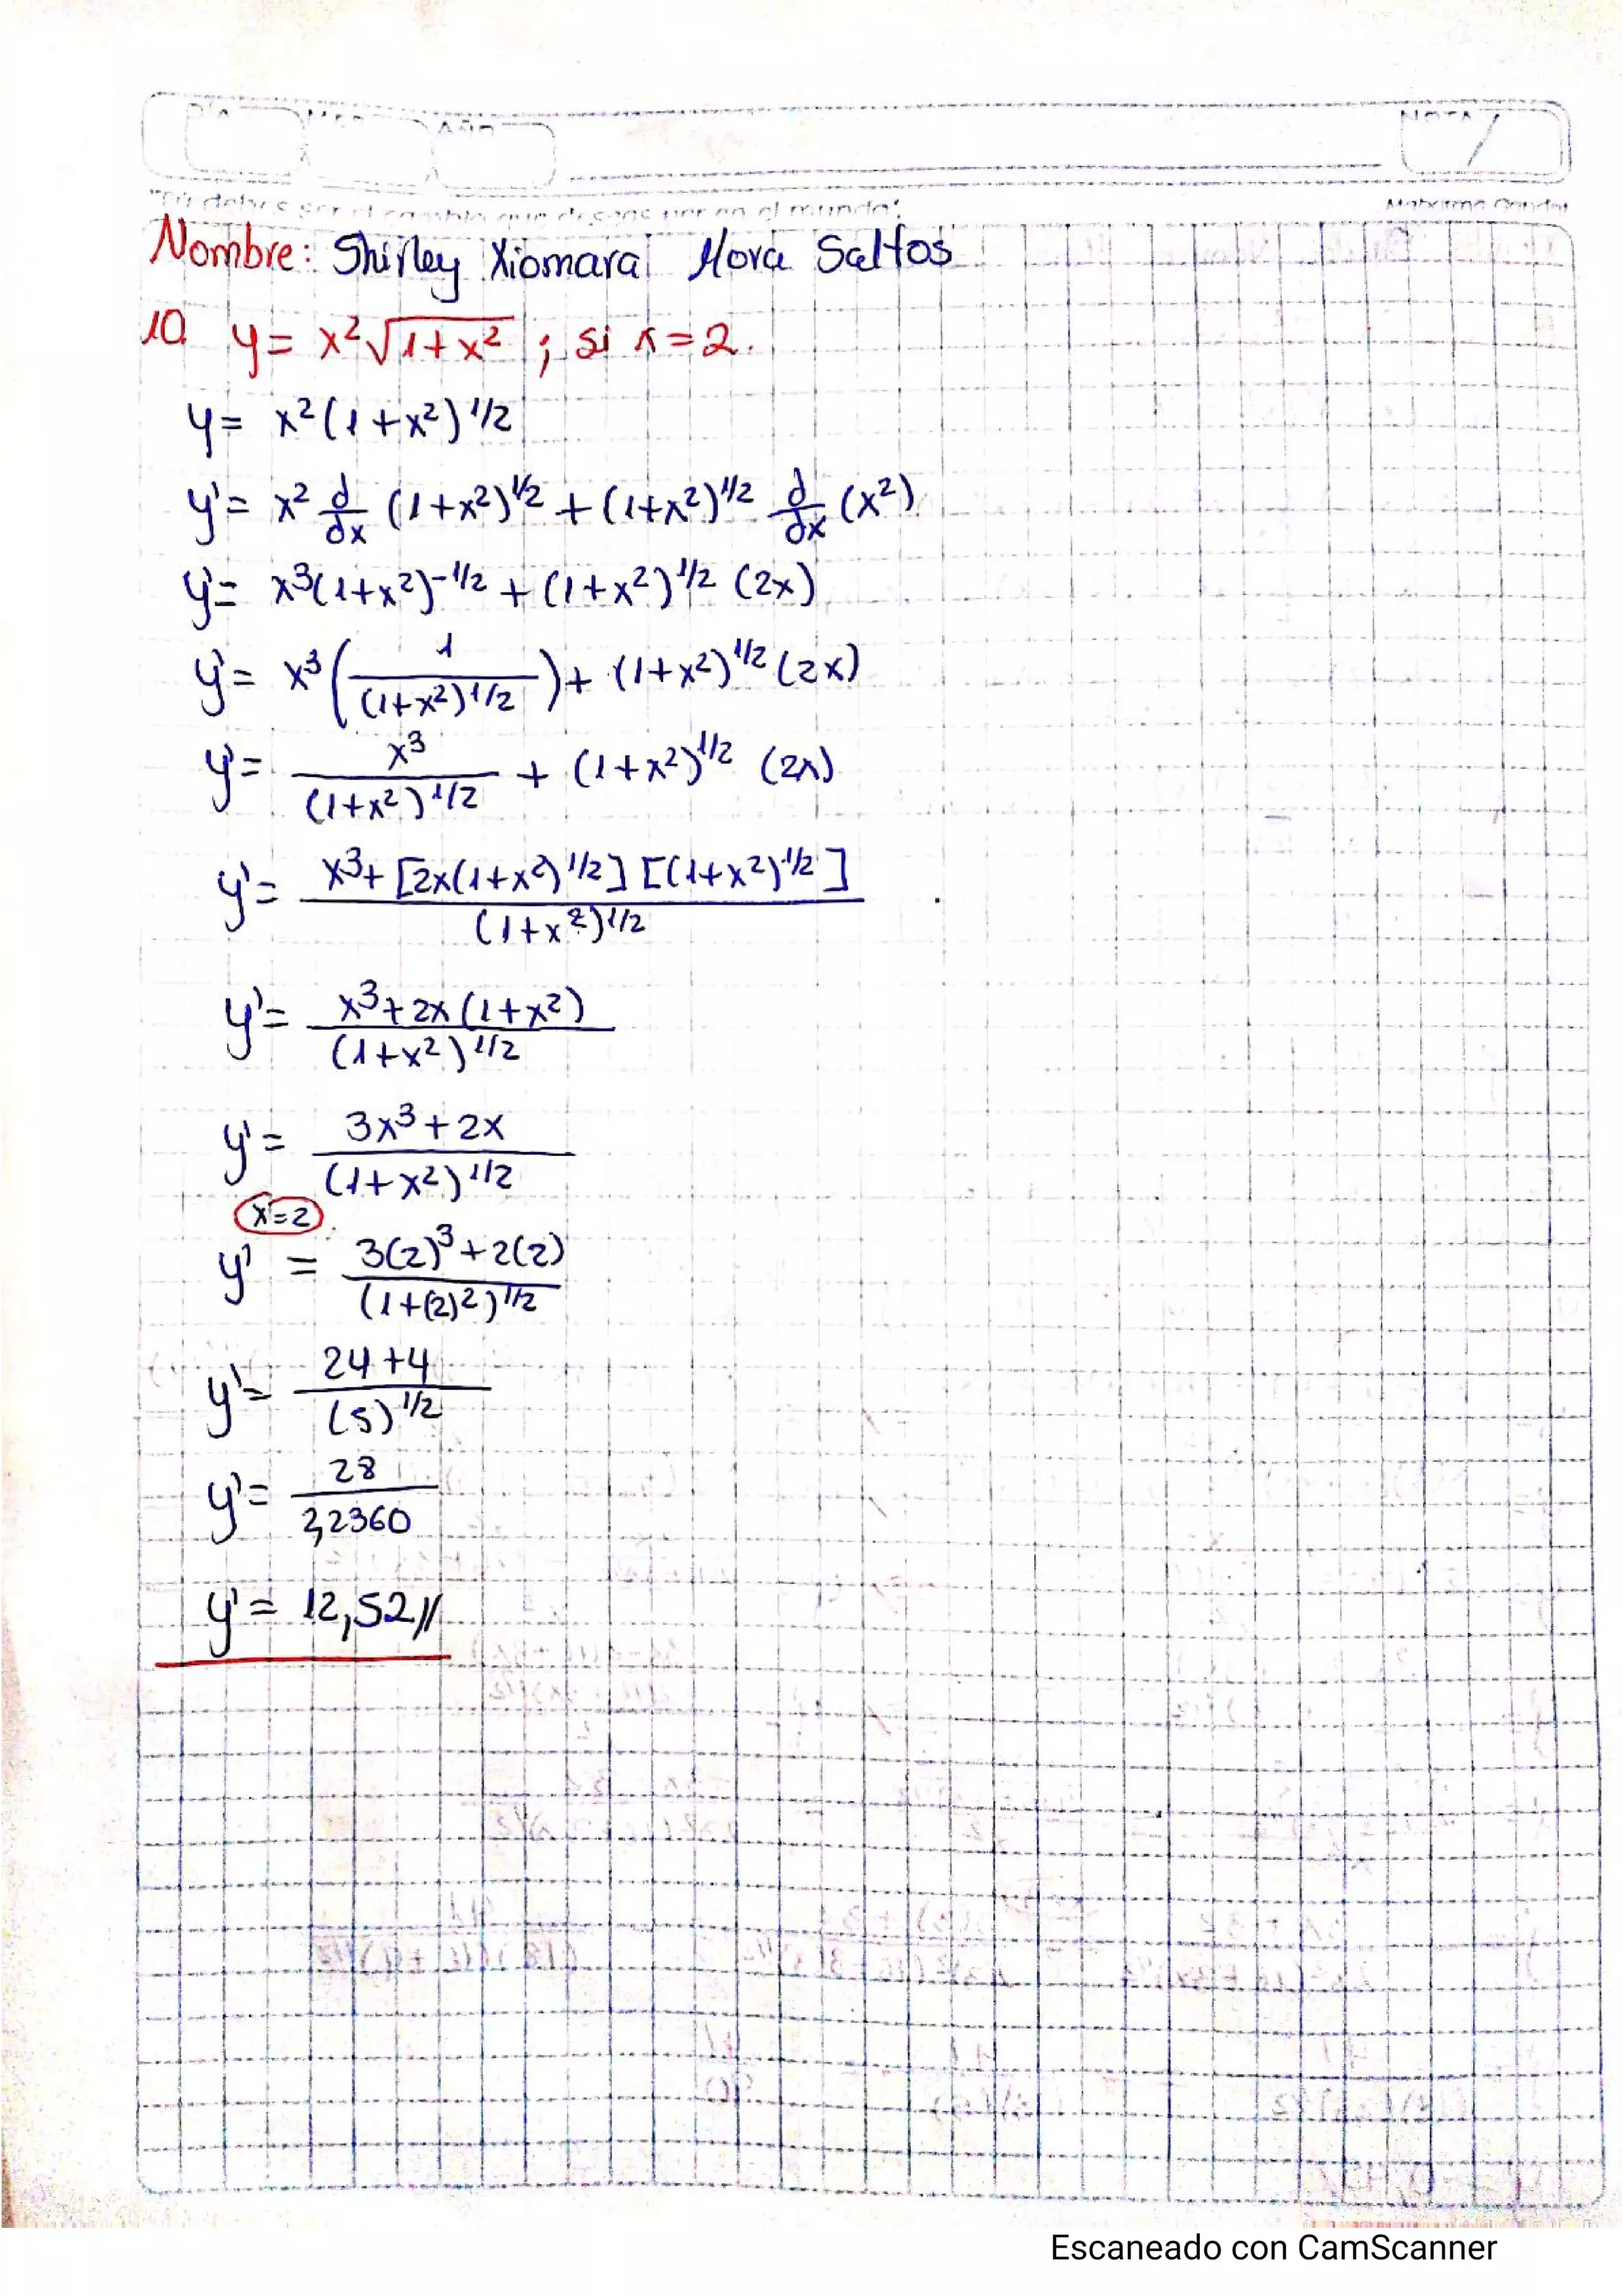 AÑO
NOTA
"Tú debes ser el cambio que deseas ver en el mundo".
Nombre: Shirley Xiomara Mora Saltos
10 y = x²√1+x² ; si x = 2.
y = x²(1+x²)^1/2
y' = x² d/dx (1+x²)^1/2 + (1+x²)^1/2 d/dx (x²)
y' = x³(1+x²)^-1/2 + (1+x²)^1/2 (2x)
y' = x³ (1/(1+x²)^1/2) + (1+x²)^1/2 (2x)
y' = x³/(1+x²)^1/2 + (1+x²)^1/2 (2x)
y' = x³+[2x(1+x²)^1/2][(1+x²)^1/2]/(1+x²)^1/2
y' = x³+2x(1+x²)/(1+x²)^1/2
y' = 3x³+2x/(1+x²)^1/2
x=2
y' = 3(2)³+2(2)/(1+(2)²)^1/2
y' = 24+4/(5)^1/2
y' = 28/2,2360
y' = 12,52//
Escaneado con CamScanner